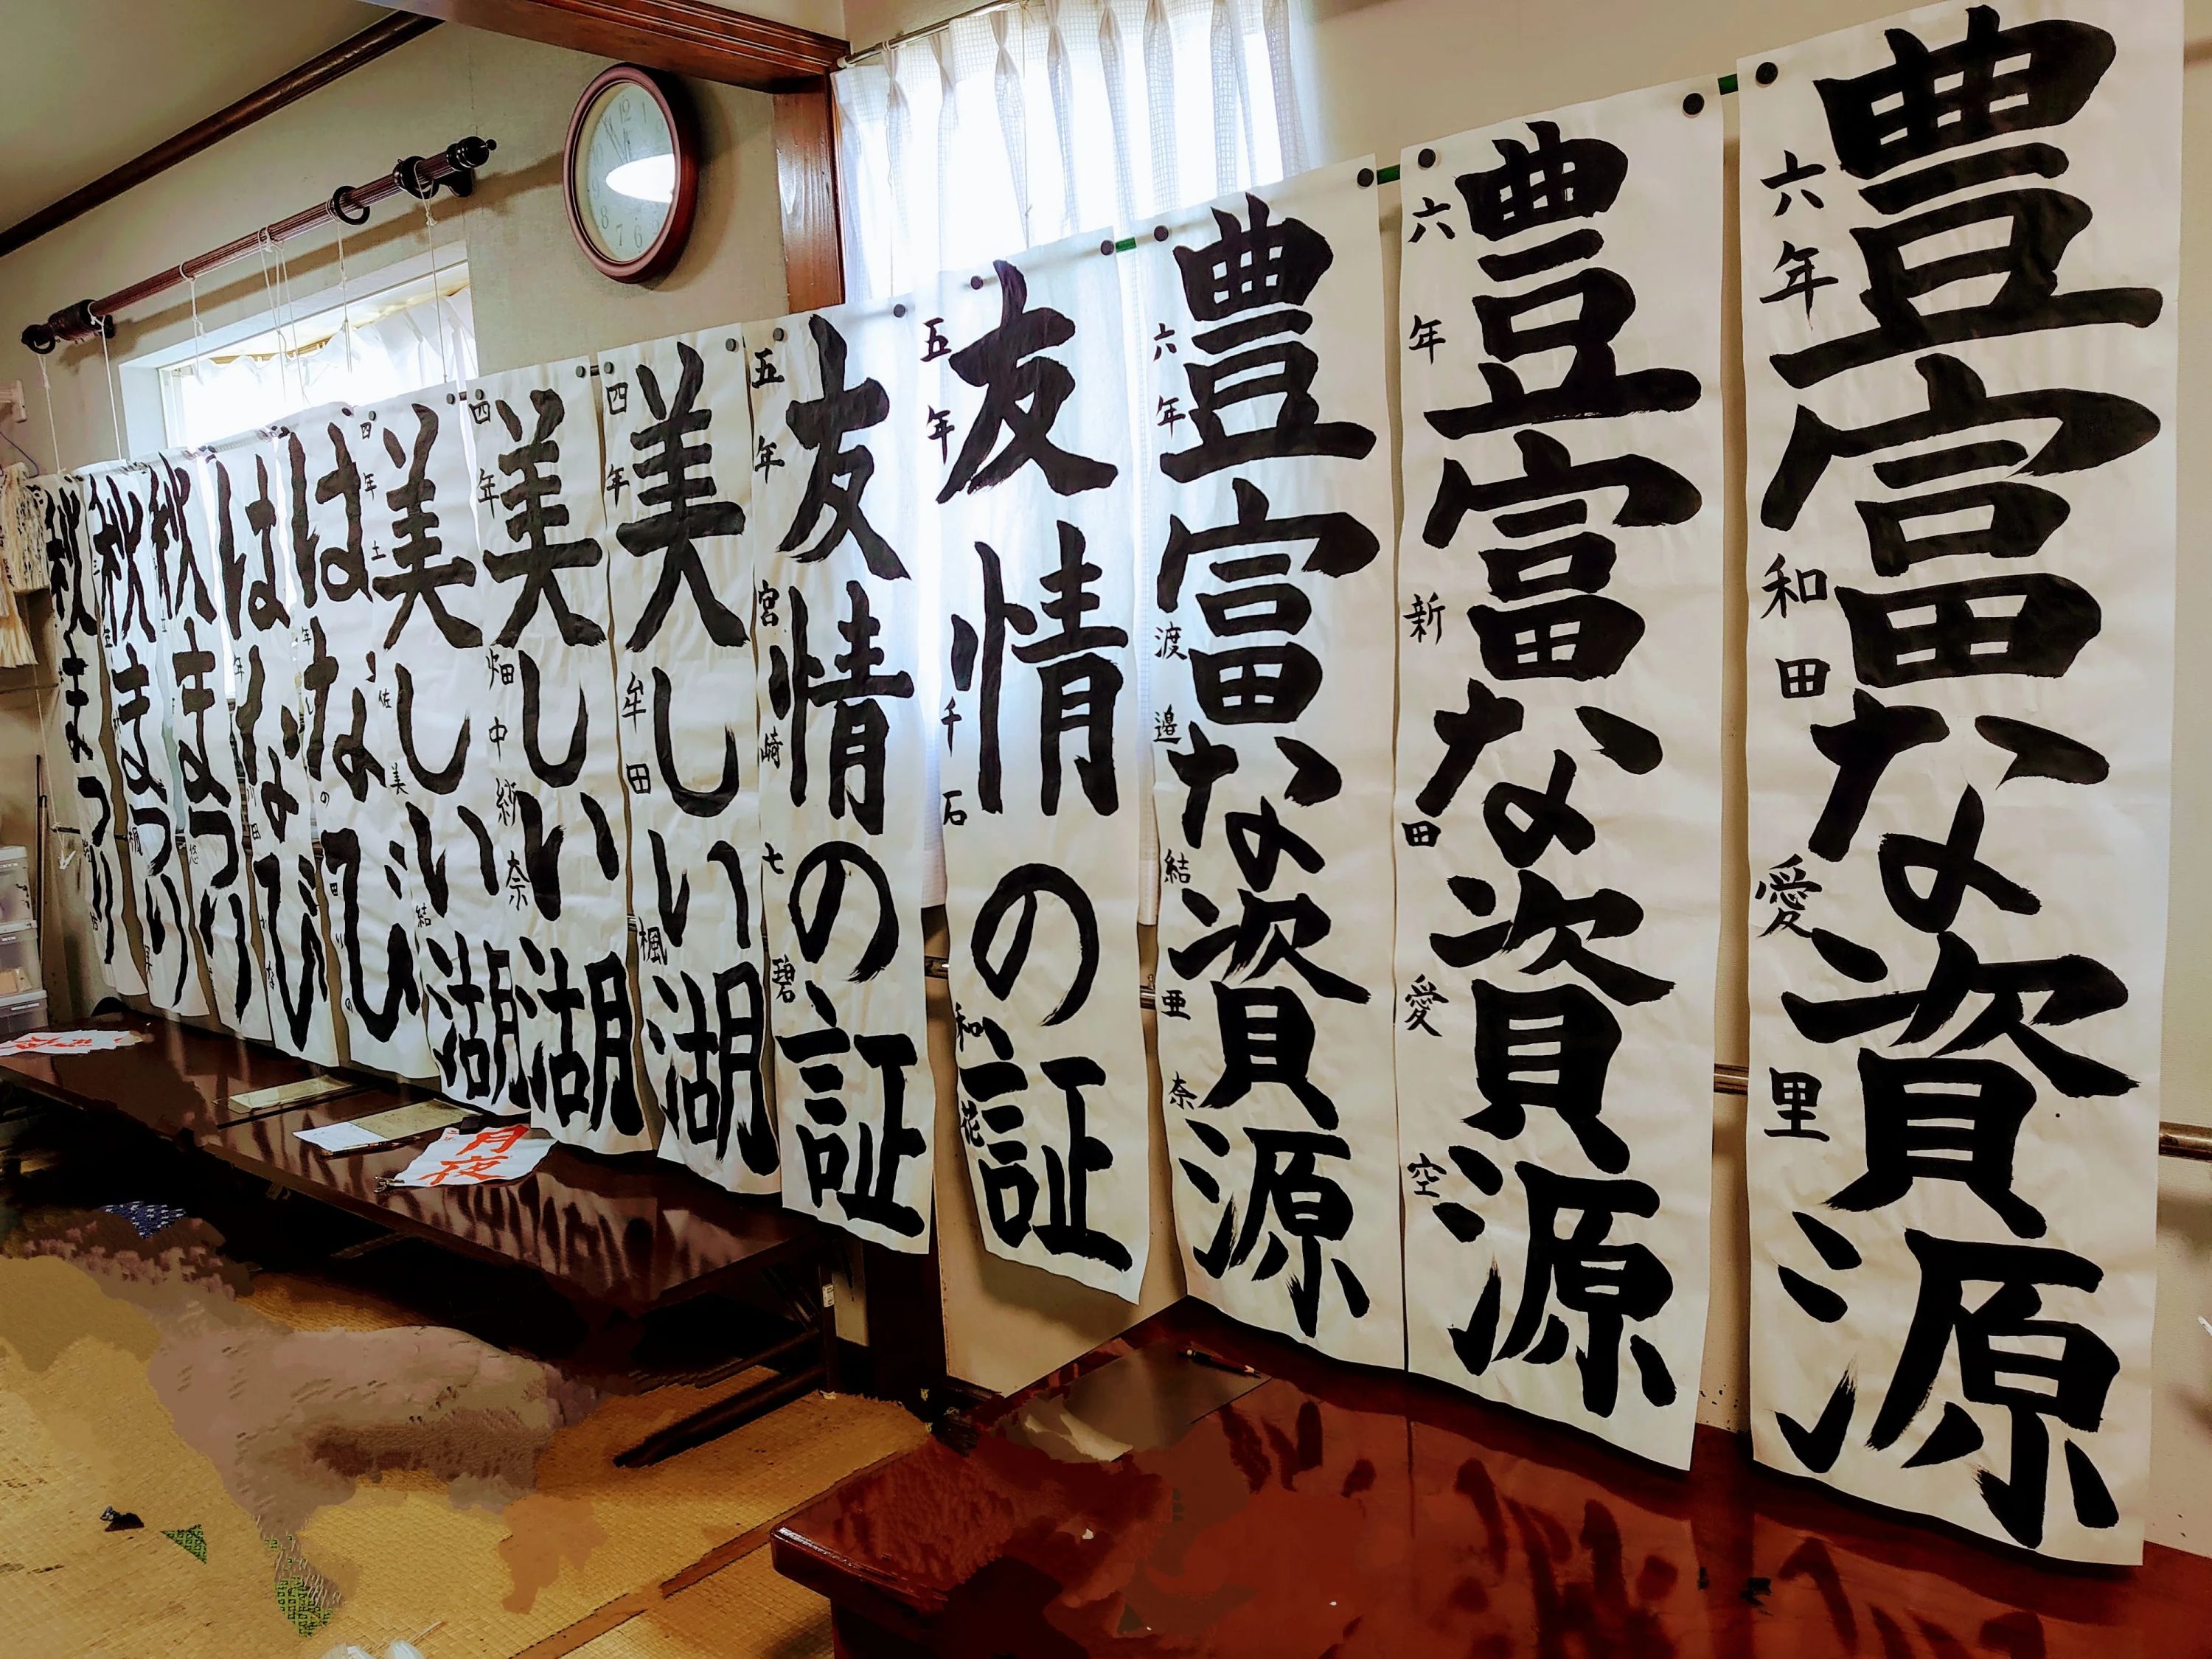 豊富な資源
六年 和田 愛里
豊富な資源
六年 新田 愛空
豊富な資源
六年 渡邉 結亜奈
友情の証
五年 千石 和花
友情の証
五年 宮崎 七碧
美しい湖
四年 牟田 楓
美しい湖
四年 畑中 紗奈
美しい湖
四年 土 佐 美結
はなび
はなび
秋まつり
秋まつり
秋まつり
月夜
12
1
6
7
8